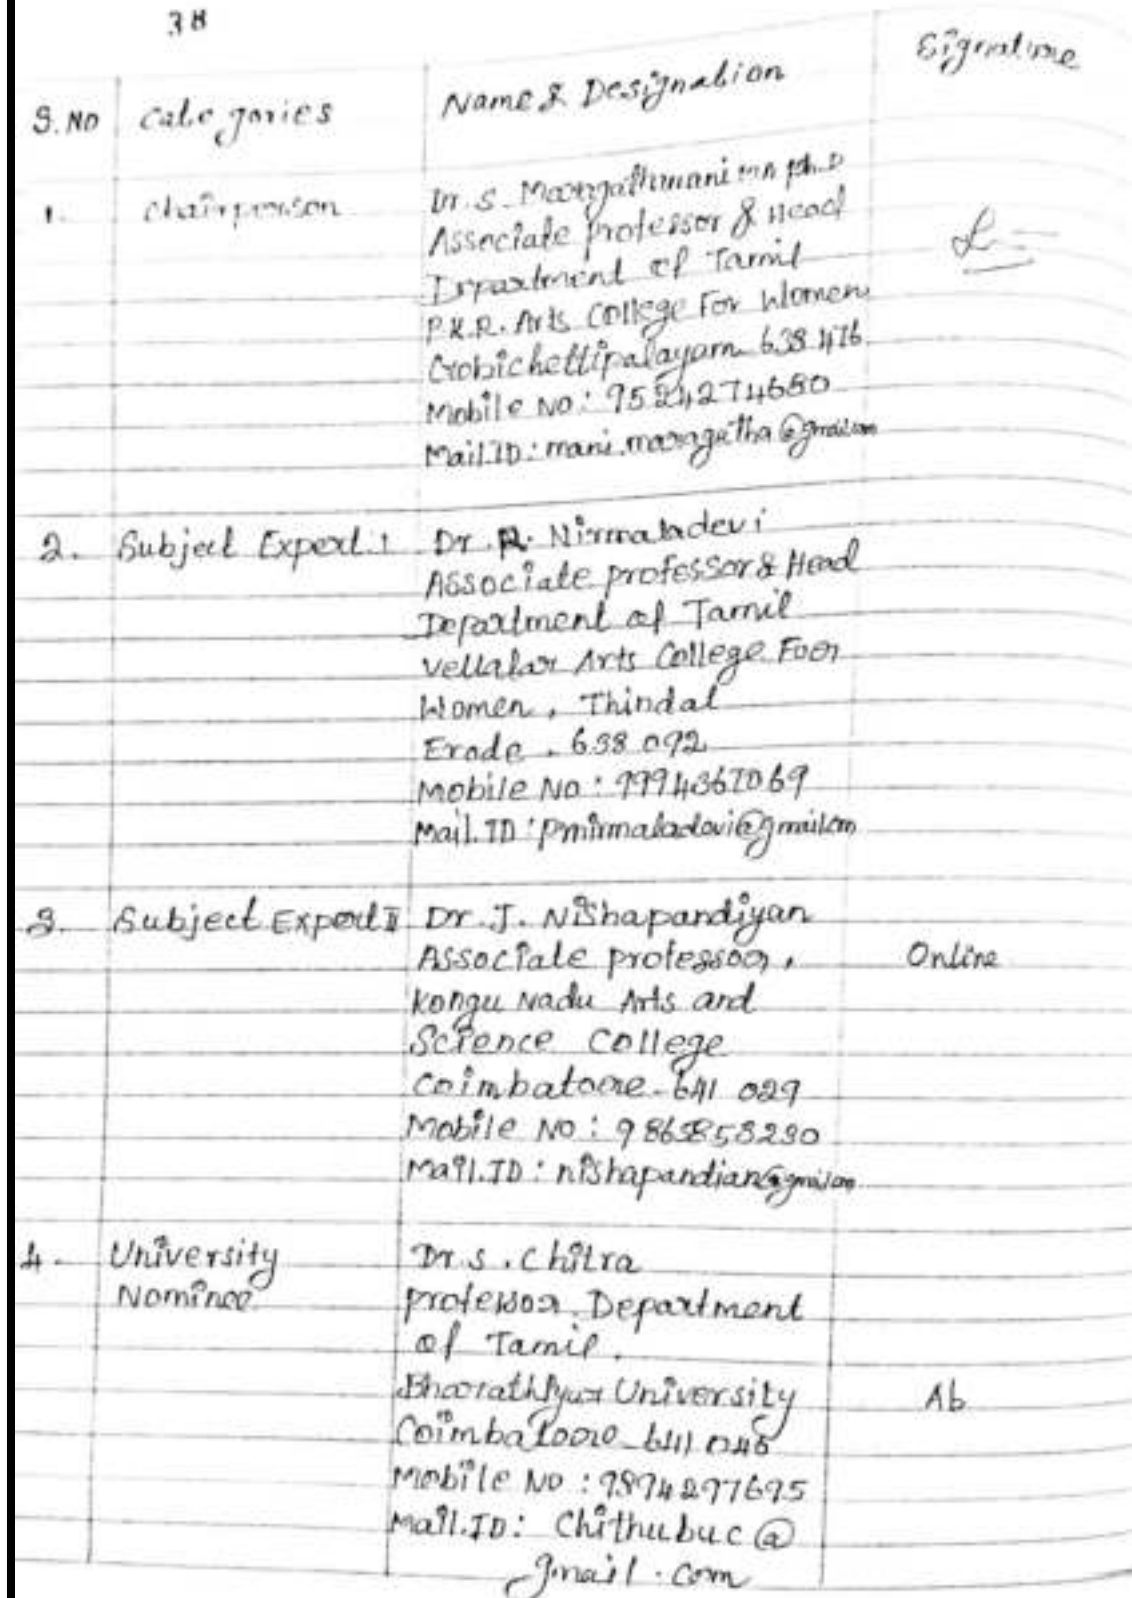 38
S.NO Categories Name & Designation Signature
1. Chairperson Dr. S. Maragathamani MA Ph.D
Associate Professor & Head
Department of Tamil
P.K.R. Arts College For Women
Gobichettipalayam 638 476
Mobile No: 9524274680
Mail.ID: mani.maragatha@gmail.com
2. Subject Expert I Dr. R. Nirmaladevi
Associate professor & Head
Department of Tamil
Vellalar Arts College For
Women, Thindal
Erode. 638 092
Mobile No: 9994367069
Mail.ID: pmirmaladevi@gmail.com
3. Subject Expert II Dr. J. Nishapandiyan
Associate professor, Online
Kongu Nadu Arts and
Science College
Coimbatore - 641 029
Mobile No: 9865853230
Mail.ID: nishapandian@gmail.com
4. University Dr. S. Chitra
Nominee professor, Department
of Tamil.
Bharathiyar University Ab
Coimbatore - 641 046
Mobile No: 9894297695
Mail.ID: Chithubuc@
gmail.com